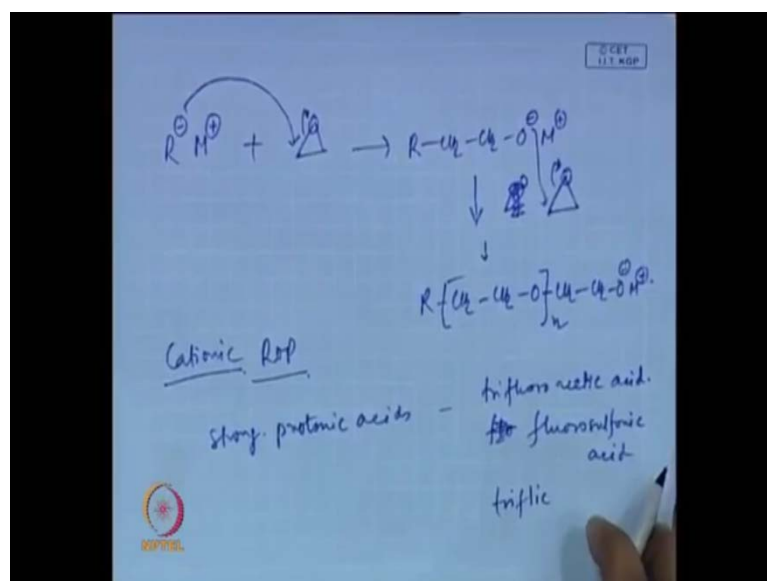 © CET
I.I.T. KGP
R⊖ M⊕ + O → R-CH2-CH2-O⊖ M⊕
O
R-[CH2-CH2-O]n-CH2-CH2-O⊖ M⊕.
Cationic ROP
strong. protonic acids - trifluoro acetic acid.
fluorosulfonic
acid
triflic
NPTEL